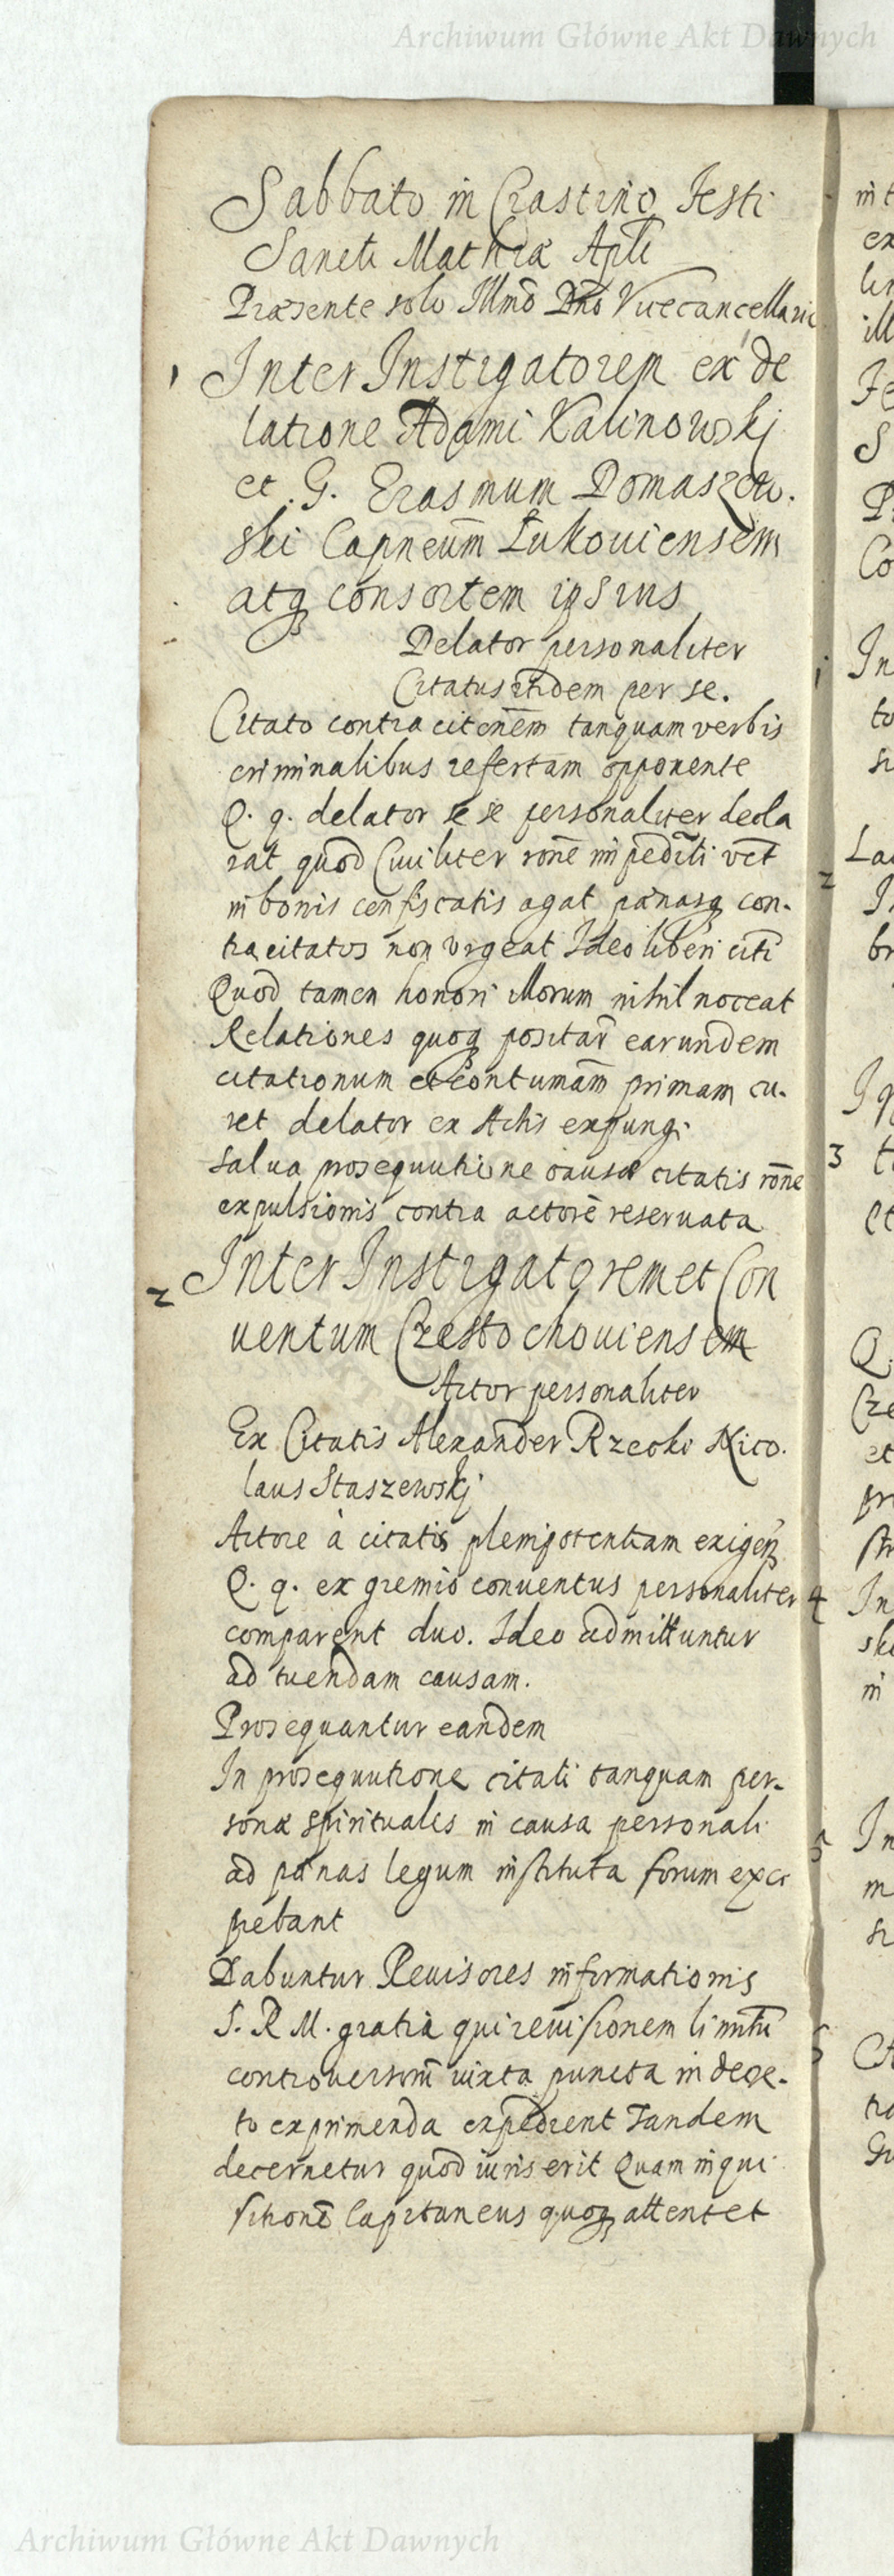 Archiwum Główne Akt Dawnych
Sabbato in Crastino Festi
Sancti Mathiæ Apli
Præsente solo Illmo Dno Vicecancellario
1 Inter Instigatorem ex de
latione Adami Kalinowskj
et G. Erasmum Domaszew.
ski Capneum Łukouiensem
atq consortem ipsius
Delator personaliter
Citatus itidem per se.
Citato contra citenem tanquam verbis
criminalibus refertam opponente
Q. q. delator se se personaliter decla
rat quod Ciuiliter rone impediti
in bonis confiscatis agat pænasq con-
tra citatos non vrgeat Ideo liberi citi
Quod tamen honori illorum nihil noceat
Relationes quoq positar earundem
citationum et contumam primam cu-
ret delator ex Actis expungi
salua prosequutione causæ citatis rone
expulsionis contra actore reseruata
2 Inter Instigatorem et Con
uentum Czestochouiensem
Actor personaliter
Ex Citatis Alexander Rzecki Nico.
laus Staszewskj
Actore à citatis plenipotentiam exigen
Q. q. ex gremio conuentus personaliter
comparent duo. Ideo admittuntur
ad tuendam causam.
Prosequantur eandem
In prosequutione citati tanquam per-
sonæ spirituales in causa personali
ad pænas legum instituta forum exci
piebant
Dabuntur Reuisores informationis
S. R M. gratia qui reuisionem limitu
controuersom iuxta puncta in decre-
to exprimenda expedient Tandem
decernetur quod iuris erit Quam inqui
sitione Capitaneus quoq attentet
Archiwum Główne Akt Dawnych